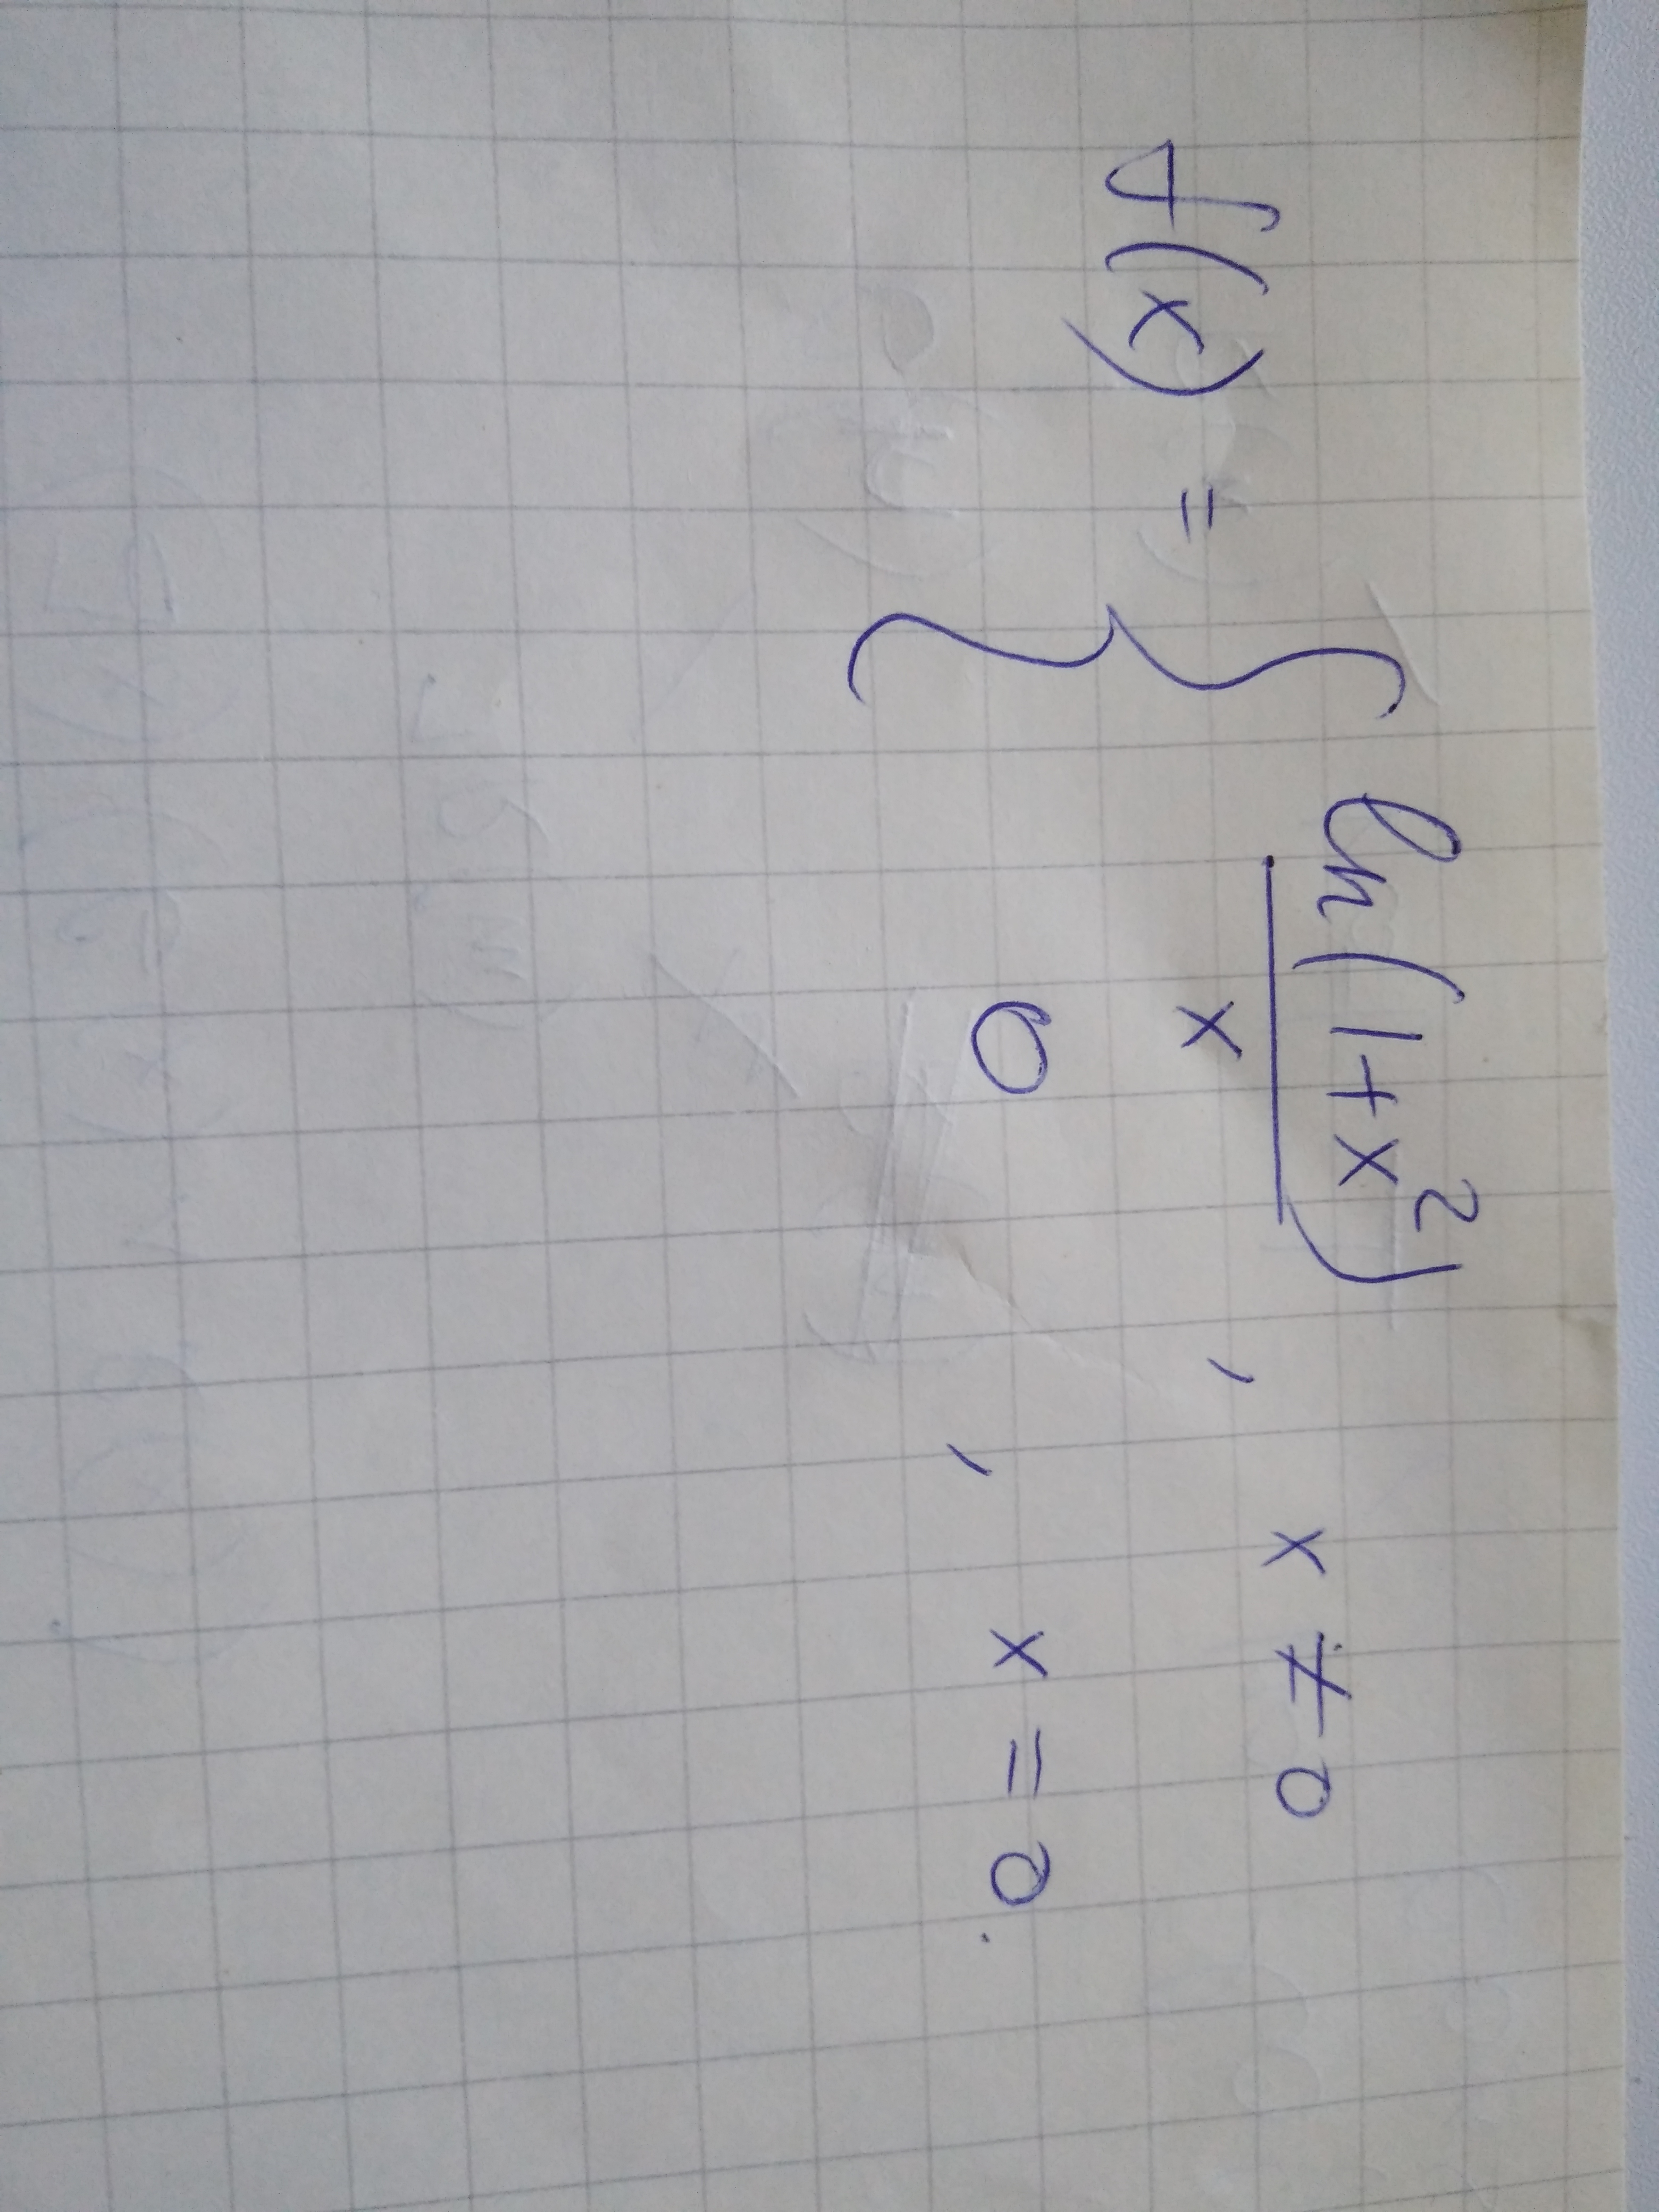 f(x) = { ln(1+x²)/x , x ≠ 0
0 , x = 0.